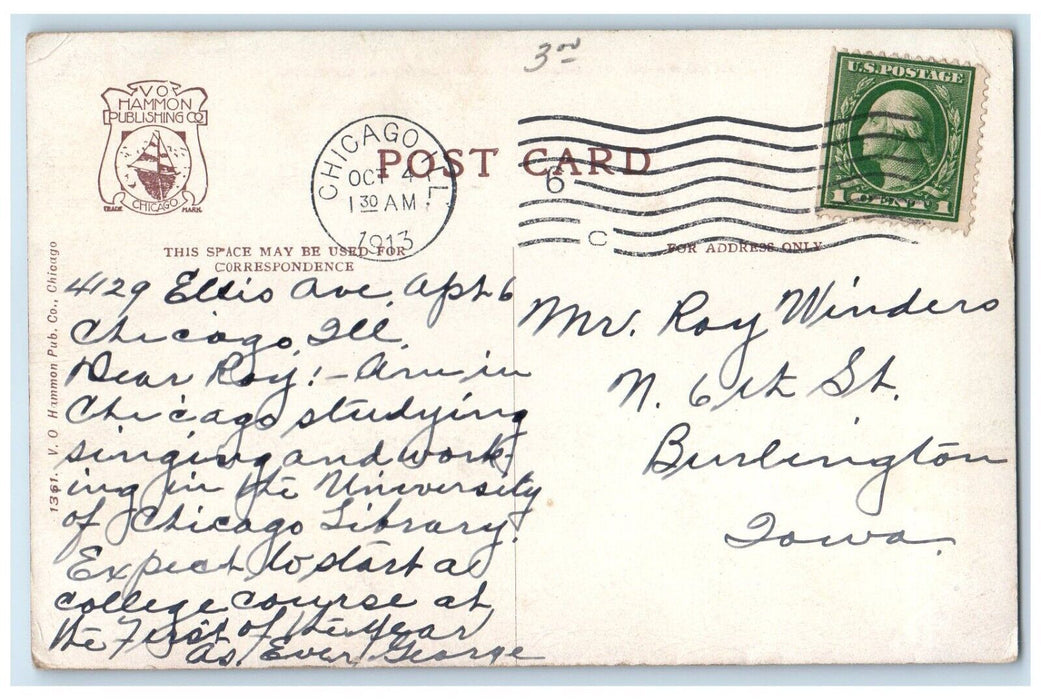 3rd
V O
HAMMON
PUBLISHING CO
CHICAGO
TRADE MARK
CHICAGO, ILL.
OCT 4
1 30 AM
1913
POST CARD
6
C
U.S. POSTAGE
1 CENT 1
THIS SPACE MAY BE USED FOR
CORRESPONDENCE
FOR ADDRESS ONLY
1361. V. O Hammon Pub. Co., Chicago
4129 Ellis Ave, Apt 6
Chicago, Ill.
Dear Roy! – Am in
Chicago studying
singing and work-
ing in the University
of Chicago Library.
Expect to start a
college course at
the First of the Year
As Ever, George
Mr. Roy Winders
N. 6th St.
Burlington
Iowa.